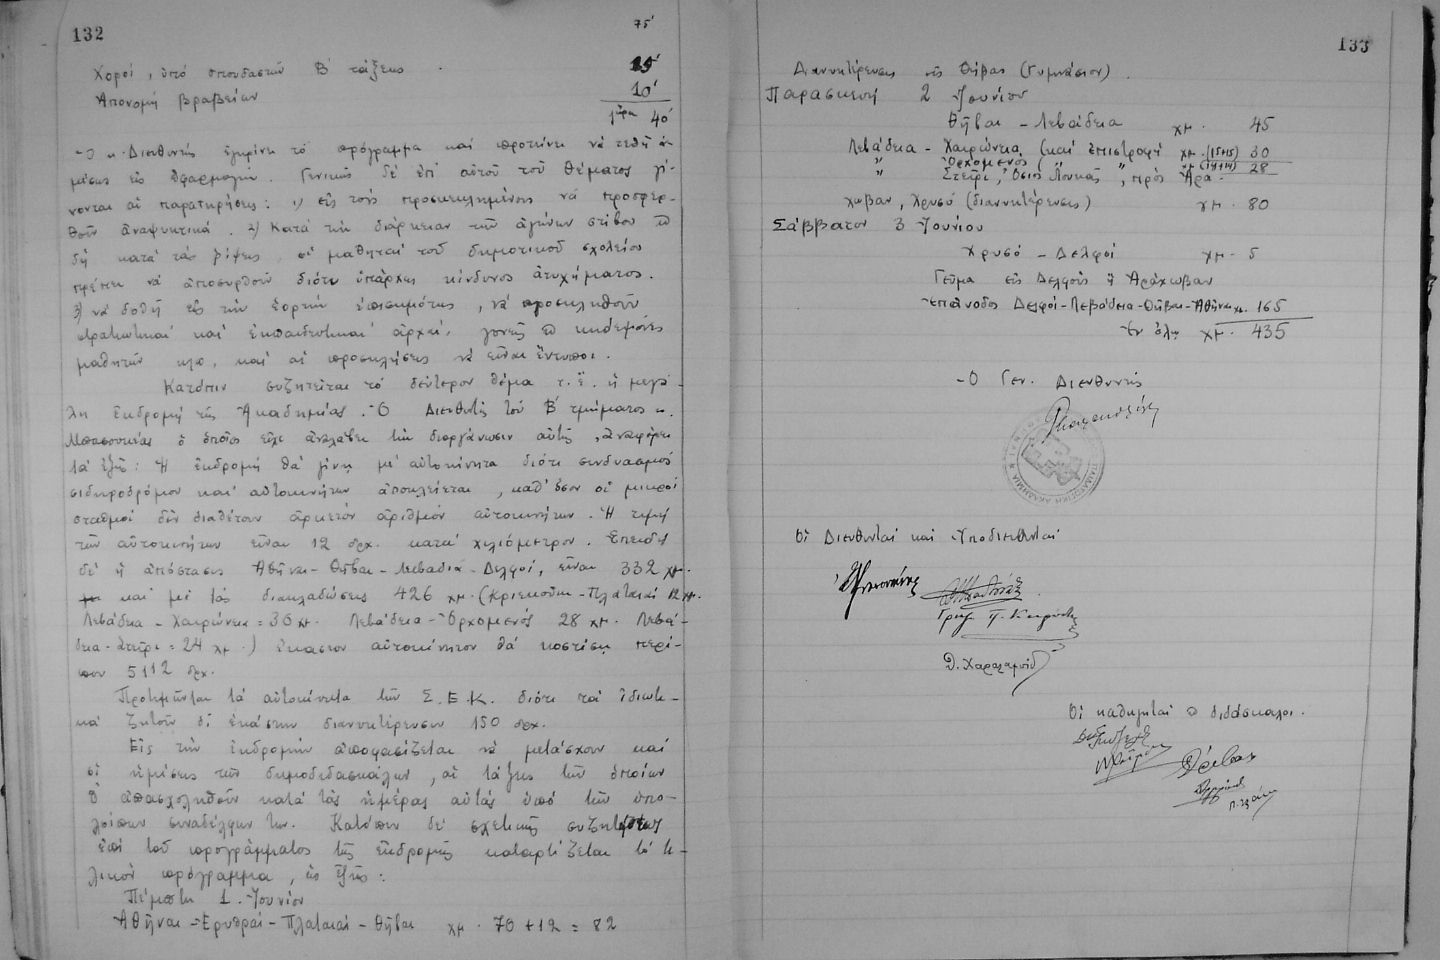 132
75'
Χοροί, ὑπό σπουδαστῶν Β' τάξεως . 15'
Ἀπονομή βραβείων 10'
1 ὥρα 40'
Ὁ κ. Διευθυντής ἐγκρίνει τό πρόγραμμα καί προτείνει νά τεθῇ ἀ-
μέσως εἰς ἐφαρμογήν. Γενικῶς δέ ἐπί αὐτοῦ τοῦ θέματος γί-
νονται αἱ παρατηρήσεις: 1) εἰς τούς προσκεκλημένους νά προσφερ-
θοῦν ἀναψυκτικά. 2) Κατά τήν διάρκειαν τῶν ἀγώνων στίβου
δή κατά τάς ρίψεις, οἱ μαθηταί τοῦ δημοτικοῦ σχολείου
πρέπει νά ἀποσυρθοῦν διότι ὑπάρχει κίνδυνος ἀτυχήματος.
3) νά δοθῇ εἰς τήν ἑορτήν ἐπισημότης, νά προσκληθοῦν
στρατιωτικαί καί ἐκπαιδευτικαί ἀρχαί, γονεῖς κηδεμόνες
μαθητῶν κλπ, καί αἱ προσκλήσεις νά εἶναι ἔντυποι.
Κατόπιν συζητεῖται τό δεύτερον θέμα τ. ἔ. ἡ μεγά-
λη ἐκδρομή τῆς Ἀκαδημίας. Ὁ Διευθυντής τοῦ Β' τμήματος κ.
ὁ ὁποῖος εἶχε ἀναλάβει τήν διοργάνωσιν αὐτῆς, ἀναφέρει
τά ἑξῆς: Ἡ ἐκδρομή θά γίνῃ μέ αὐτοκίνητα διότι συνδυασμός
σιδηροδρόμου καί αὐτοκινήτων ἀποκλείεται, καθ' ὅσον οἱ μικροί
σταθμοί δέν διαθέτουν ἀρκετόν ἀριθμόν αὐτοκινήτων. Ἡ τιμή
τῶν αὐτοκινήτων εἶναι 12 δρχ. κατά χιλιόμετρον. Ἐπειδή
δέ ἡ ἀπόστασις Ἀθῆναι - Θῆβαι - Λεβαδιά - Δελφοί, εἶναι 332 χμ.
καί μέ τάς διακλαδώσεις 426 χμ. (Κριεκοῦκι - Πλαταιαί 12 χμ.
Λεβάδεια - Χαιρώνεια = 30 χμ. Λεβάδεια - Ὀρχομενός 28 χμ. Λεβά-
δεια - Στείρι = 24 χμ.) ἕκαστον αὐτοκίνητον θά κοστίσῃ περί-
που 5112 δρχ.
Προτιμῶνται τά αὐτοκίνητα τῶν Σ.Ε.Κ. διότι τά ἰδιωτι-
κά ζητοῦν δι' ἑκάστην διανυκτέρευσιν 150 δρχ.
Εἰς τήν ἐκδρομήν ἀποφασίζεται νά μετάσχουν καί
οἱ ἡμίσεις τῶν δημοδιδασκάλων, αἱ τάξεις τῶν ὁποίων
θ' ἀπασχοληθοῦν κατά τάς ἡμέρας αὐτάς ὑπό τῶν ὑπο-
λοίπων συναδέλφων των. Κατόπιν δέ σχετικῆς συζητήσεως
ἐπί τοῦ προγράμματος τῆς ἐκδρομῆς καταρτίζεται τό τε-
λικόν πρόγραμμα, ὡς ἑξῆς:
Πέμπτη 1. Ἰουνίου
Ἀθῆναι - Ἐρυθραί - Πλαταιαί - Θῆβαι χμ. 70 + 12 = 82
133
Διανυκτέρευσις εἰς Θήβας (Γυμνάσιον).
Παρασκευή 2 Ἰουνίου
Θῆβαι - Λεβάδεια χμ. 45
Λεβάδεια - Χαιρώνεια (καί ἐπιστροφή χμ. (15+15) 30
" Ὀρχομενός ( " χμ (14+14) 28
" Στείρι, Ὅσιος Λουκᾶς, πρός Ἀρά-
χωβαν, Χρυσό (διανυκτέρευσις) χμ. 80
Σάββατον 3 Ἰουνίου
Χρυσό - Δελφοί χμ. 5
Γεῦμα εἰς Δελφούς ἤ Ἀράχωβαν
Ἐπάνοδος Δελφοί - Λεβάδεια - Θῆβαι - Ἀθῆναι χμ. 165
Ἐν ὅλῳ χμ. 435
Ὁ Γεν. Διευθυντής
ΠΑΙΔΑΓΩΓΙΚΗ ΑΚΑΔΗΜΙΑ
Οἱ Διευθυνταί καί Ὑποδιευθυνταί
Δ. Χαραλαμπ
Οἱ καθηγηταί διδάσκαλοι.